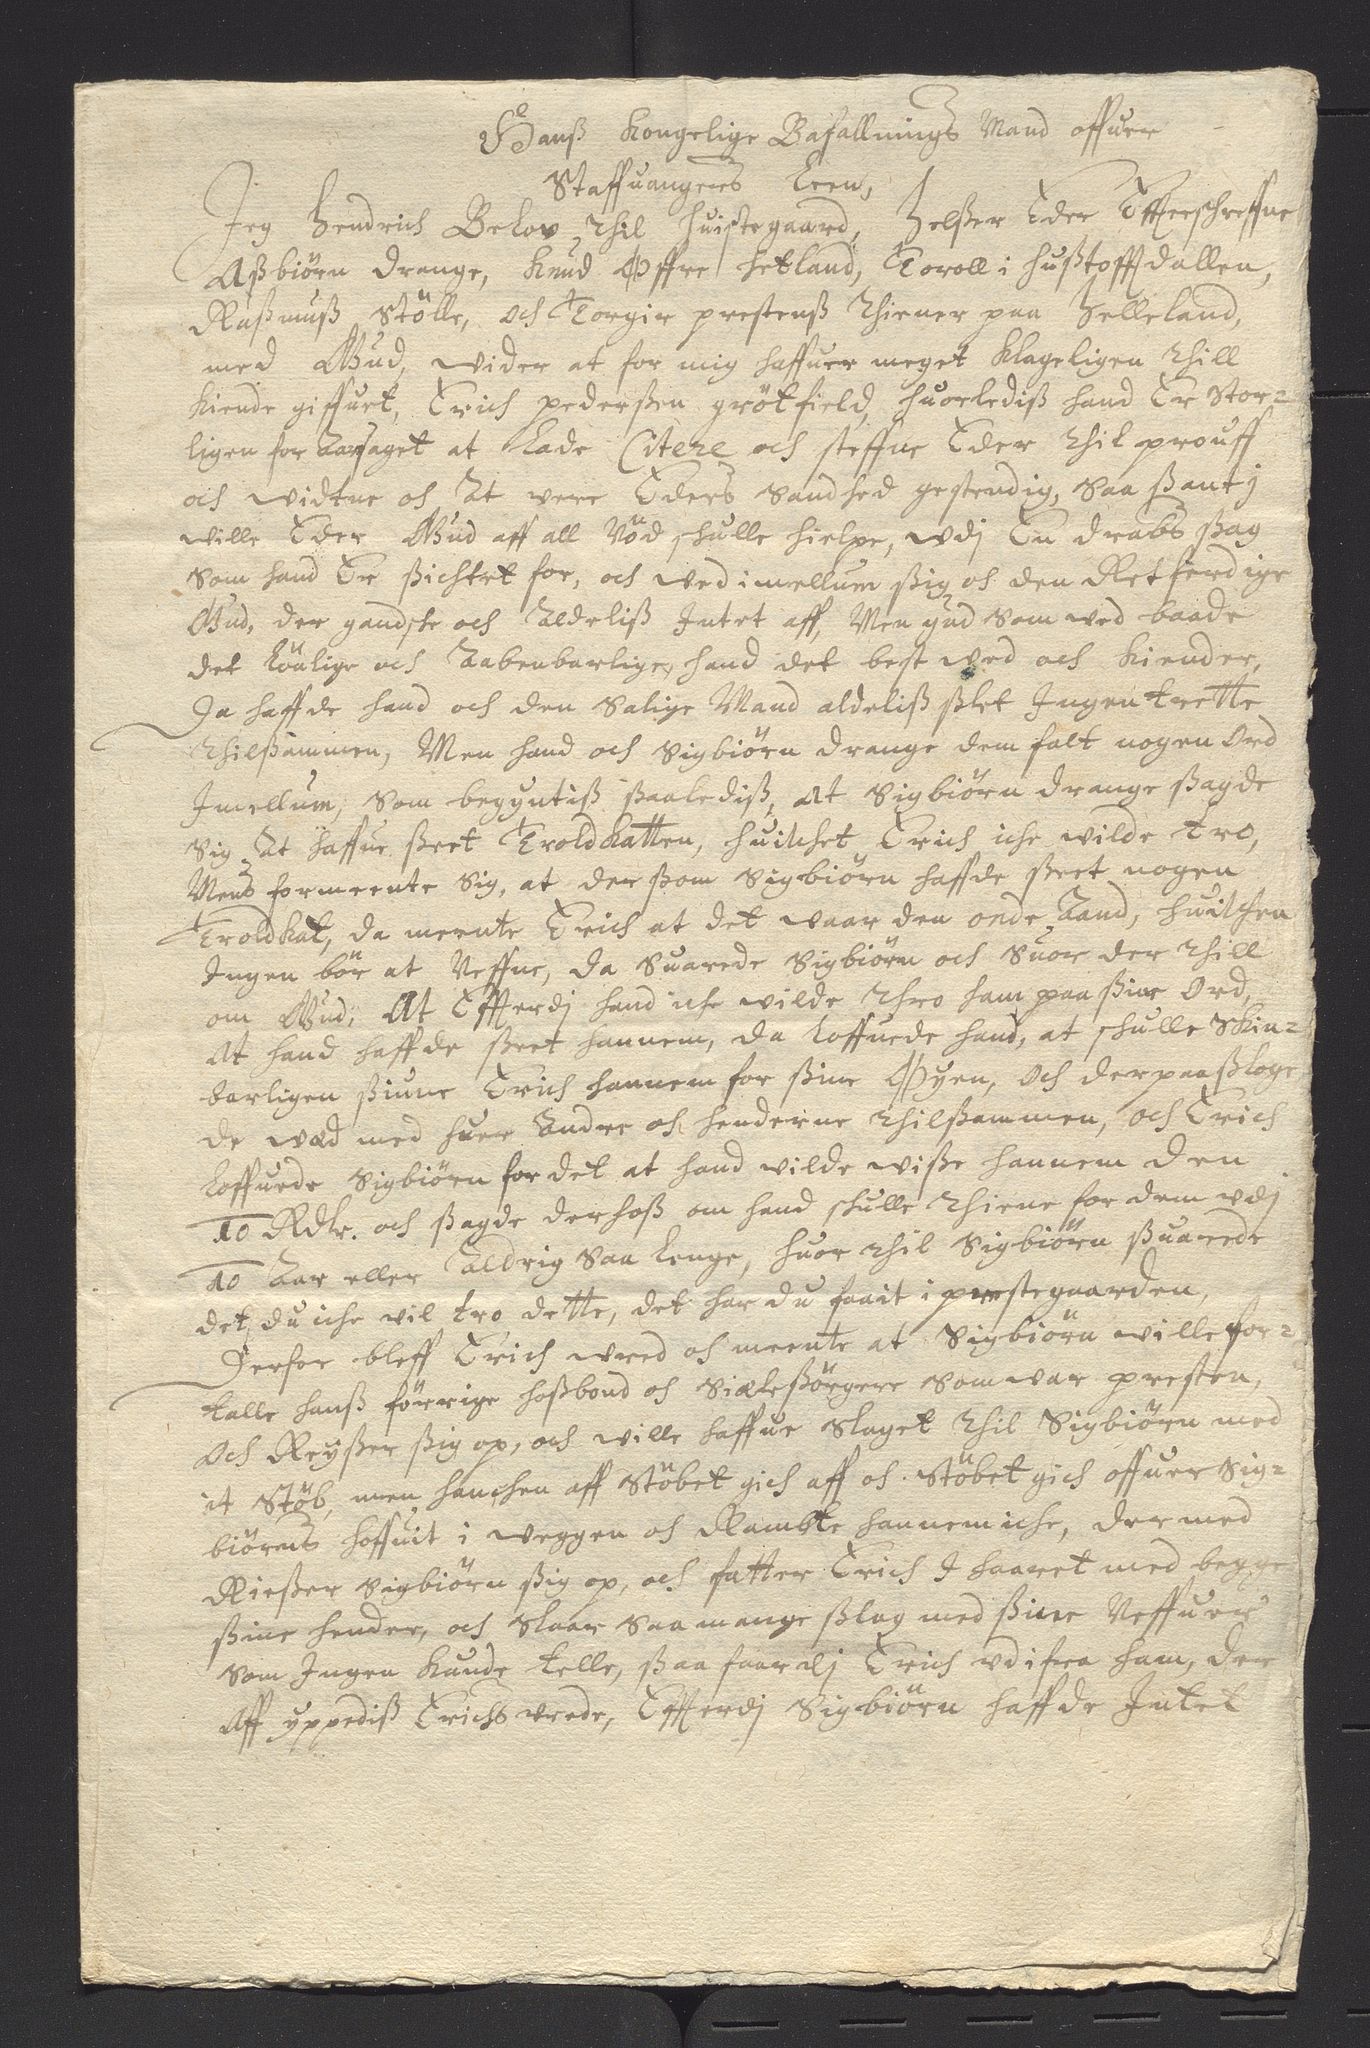 Hanß Kongelige Bafallnings Mand offuer
Staffuangers Leen,
Jeg Hendrich Belov, thil Huistegaard, Helßer Eder Effterschreffne
Aßbiörn Drange, Knud Øffre hetland, Toroll i hußtofftdallen,
Raßmuß Stölle, och Torgir prestenß thiener paa Helleland,
med Gud, wider at for mig haffuer meget klageligen thill
kiende giffuet, Erich pederßen grötfield, huorlediß hand Er stor-
ligen for Aarsaget at lade Citere och steffne Eder thil prouff
och widtne oc At were Eders Sandhed gestendig, saa ßant j
wille Eder Gud aff all Nöd schulle hielpe, wdj En drabs ßag
som hand Er ßichtet for, och ved imellum ßig oc den Retferdige
Gud, der gandsche och Aldeliß Intet aff, Men gud som wed baade
det löulige och Aabenbarlige, hand det best wed och kiender,
Da haffde hand och den Salige Mand aldeliß ßlet Ingen trette
thilßammen, Men hand och Sigbiörn Drange dem falt nogen Ord
Imellum, som begyntiß ßaalediß, At Sigbiörn Drange ßagde
sig At haffue ßeet Troldkatten, huilchet Erich iche wilde tro,
Mens formeente sig, at der ßom Sigbiörn haffde ßeet nogen
Troldkat, da meente Erich at det waar den onde Aand, huilchen
Ingen bör at Neffne, da Suarede Sigbiörn och Suor der thill
om Gud, At Effterdj hand iche wilde thro ham paa ßine Ord,
At hand haffde ßeet hannem, da loffuede hand, at schulle Skin-
barligen ßiune Erich hannem for ßine Øyen, Och der paa ßloge
de wæd med huer Andre oc henderne thilßammen, och Erich
loffuede Sigbiörn for det at hand vilde wiße hannem den
10 Rdlr. och ßagde derhoß om hand schulle thiene for dem wdj
10 Aar eller Aldrig saa lenge, huor thil Sigbiörn ßuarede
det du iche vil tro dette, det har du faait i prestegaarden,
Derfor bleff Erich wred oc meente at Sigbiörn wille for-
talle hanß förrige hoßbond oc Siæleßörgere som war presten,
Och Reyßer ßig op, och wille haffue Slaget thil Sigbiörn med
it Stöb, men hanchen aff Stöbet gich aff oc Stöbet gich offuer Sig-
biörns hoffuit i weggen oc Ramble hannem iche, der med
Rießer Sigbiörn ßig op, och fatter Erich I haaret med begge
ßine hender, och Slaar saa mange ßlag med ßine Neffuer
som Ingen kunde telle, ßaa faar dj Erich vd ifra ham, der
Aff yppediß Erichs vrede, Effterdj Sigbiörn haffde Intet